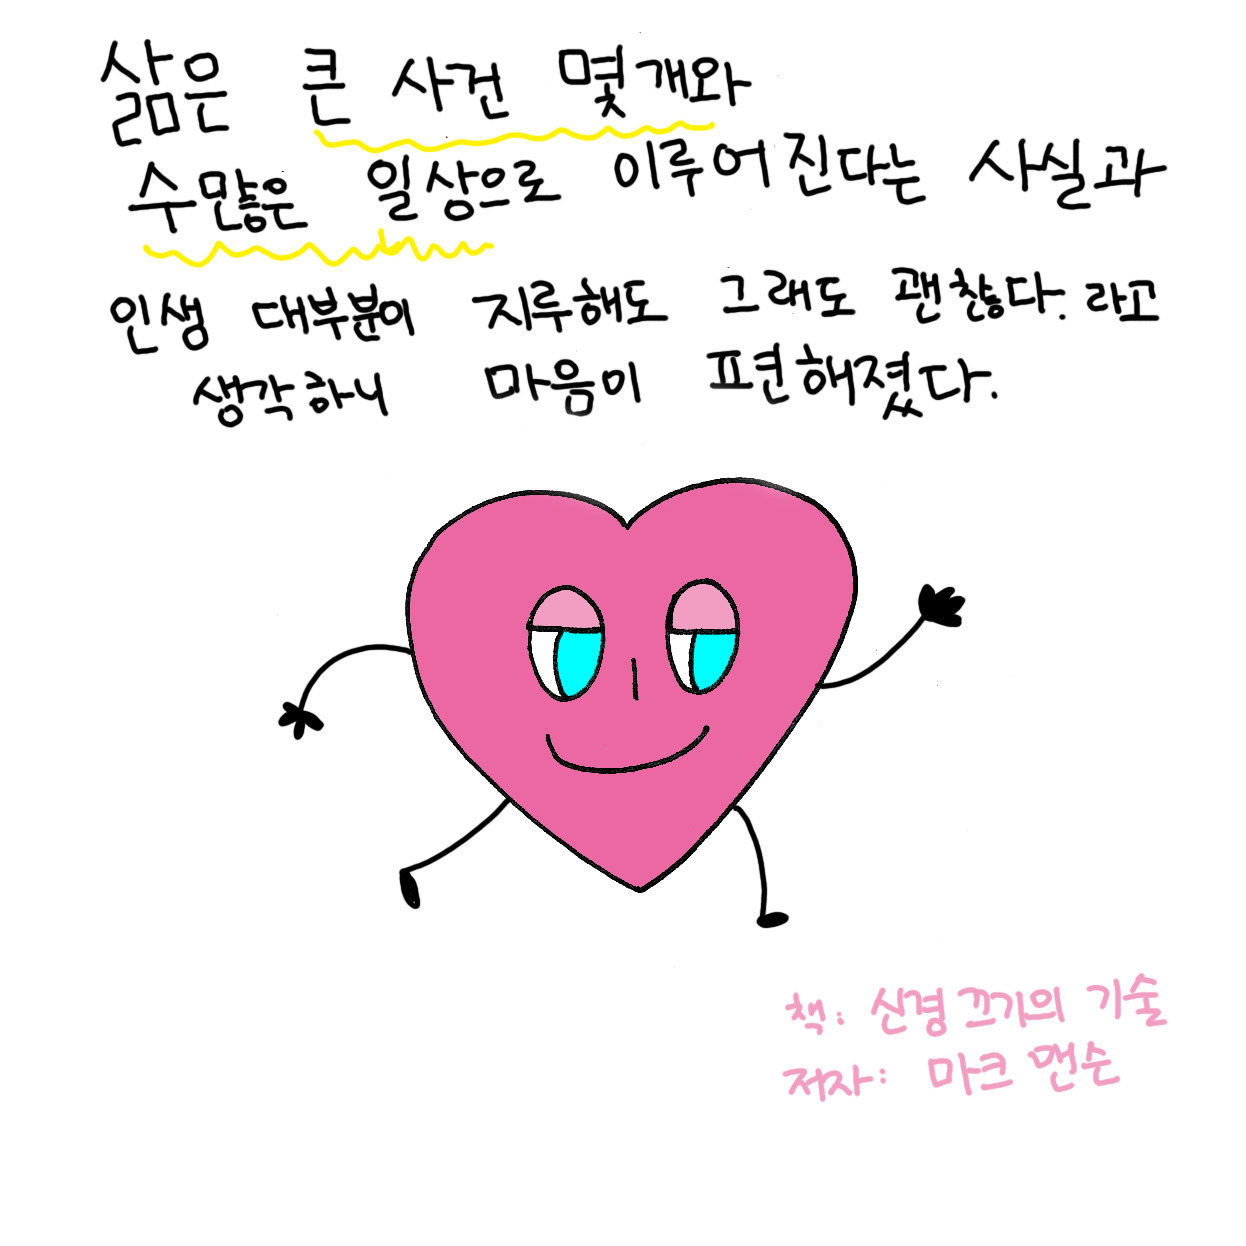 삶은 큰 사건 몇개와
수많은 일상으로 이루어진다는 사실과
인생 대부분이 지루해도 그래도 괜찮다. 라고
생각하니 마음이 편해졌다.
책: 신경끄기의 기술
저자: 마크 맨슨